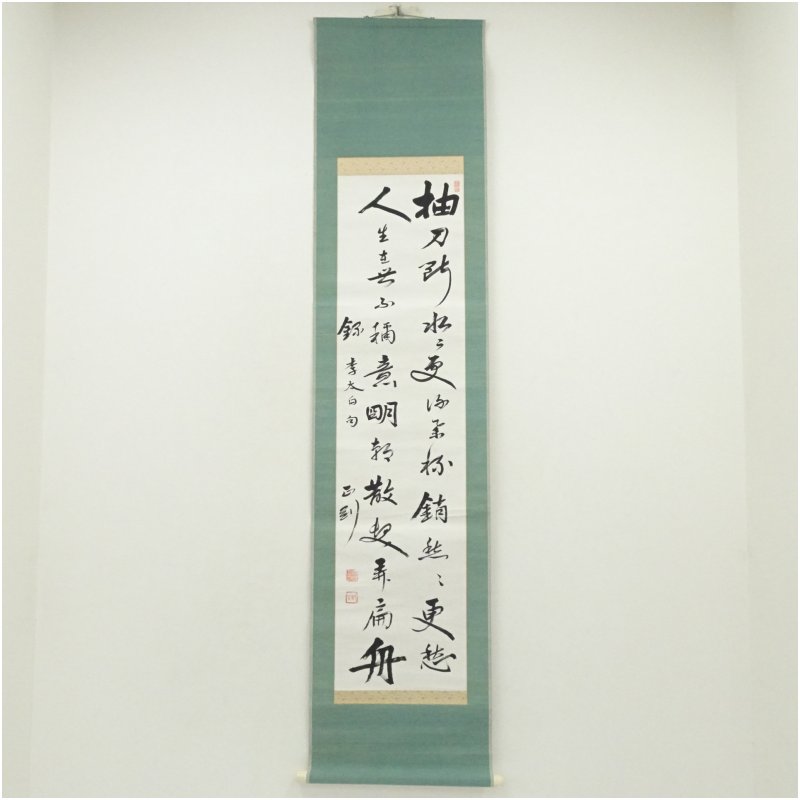 抽刀断水々更流挙杯銷愁々更愁
人生在世不稱意明朝散髮弄扁舟
錄李太白句 正剛